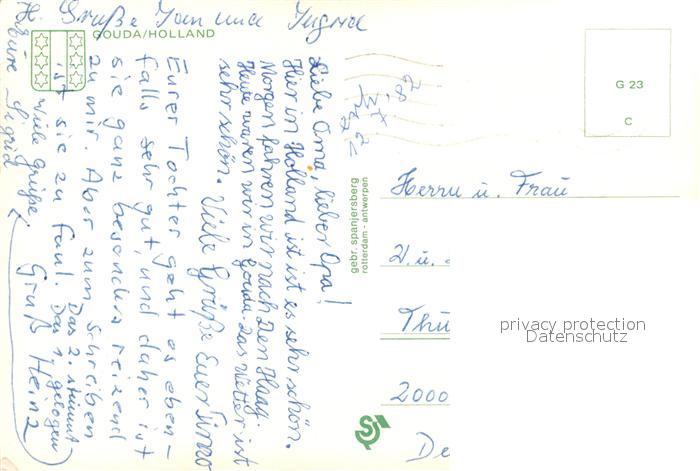 H. Gruße Jan und Ingrid
GOUDA/HOLLAND
Liebe Oma, lieber Opa!
Hier in Holland ist ist es sehr schön.
Morgen fahren wir nach Den Haag.
Heute waren wir in Gouda. Das Wetter ist
sehr schön. Viele Grüße Euer Timo
Eurer Tochter geht es eben-
falls sehr gut, und daher ist
sie ganz besonders reizend
zu mir. Aber zum Schreiben
ist sie zu faul. Das 2. stimmt
Das 1. gelogen
Viele Grüße Gruß Heinz
Eure Sigrid
82
gebr. spanjersberg
rotterdam - antwerpen
G 23
C
Herrn u. Frau
Thü
2000
De
privacy protection
Datenschutz